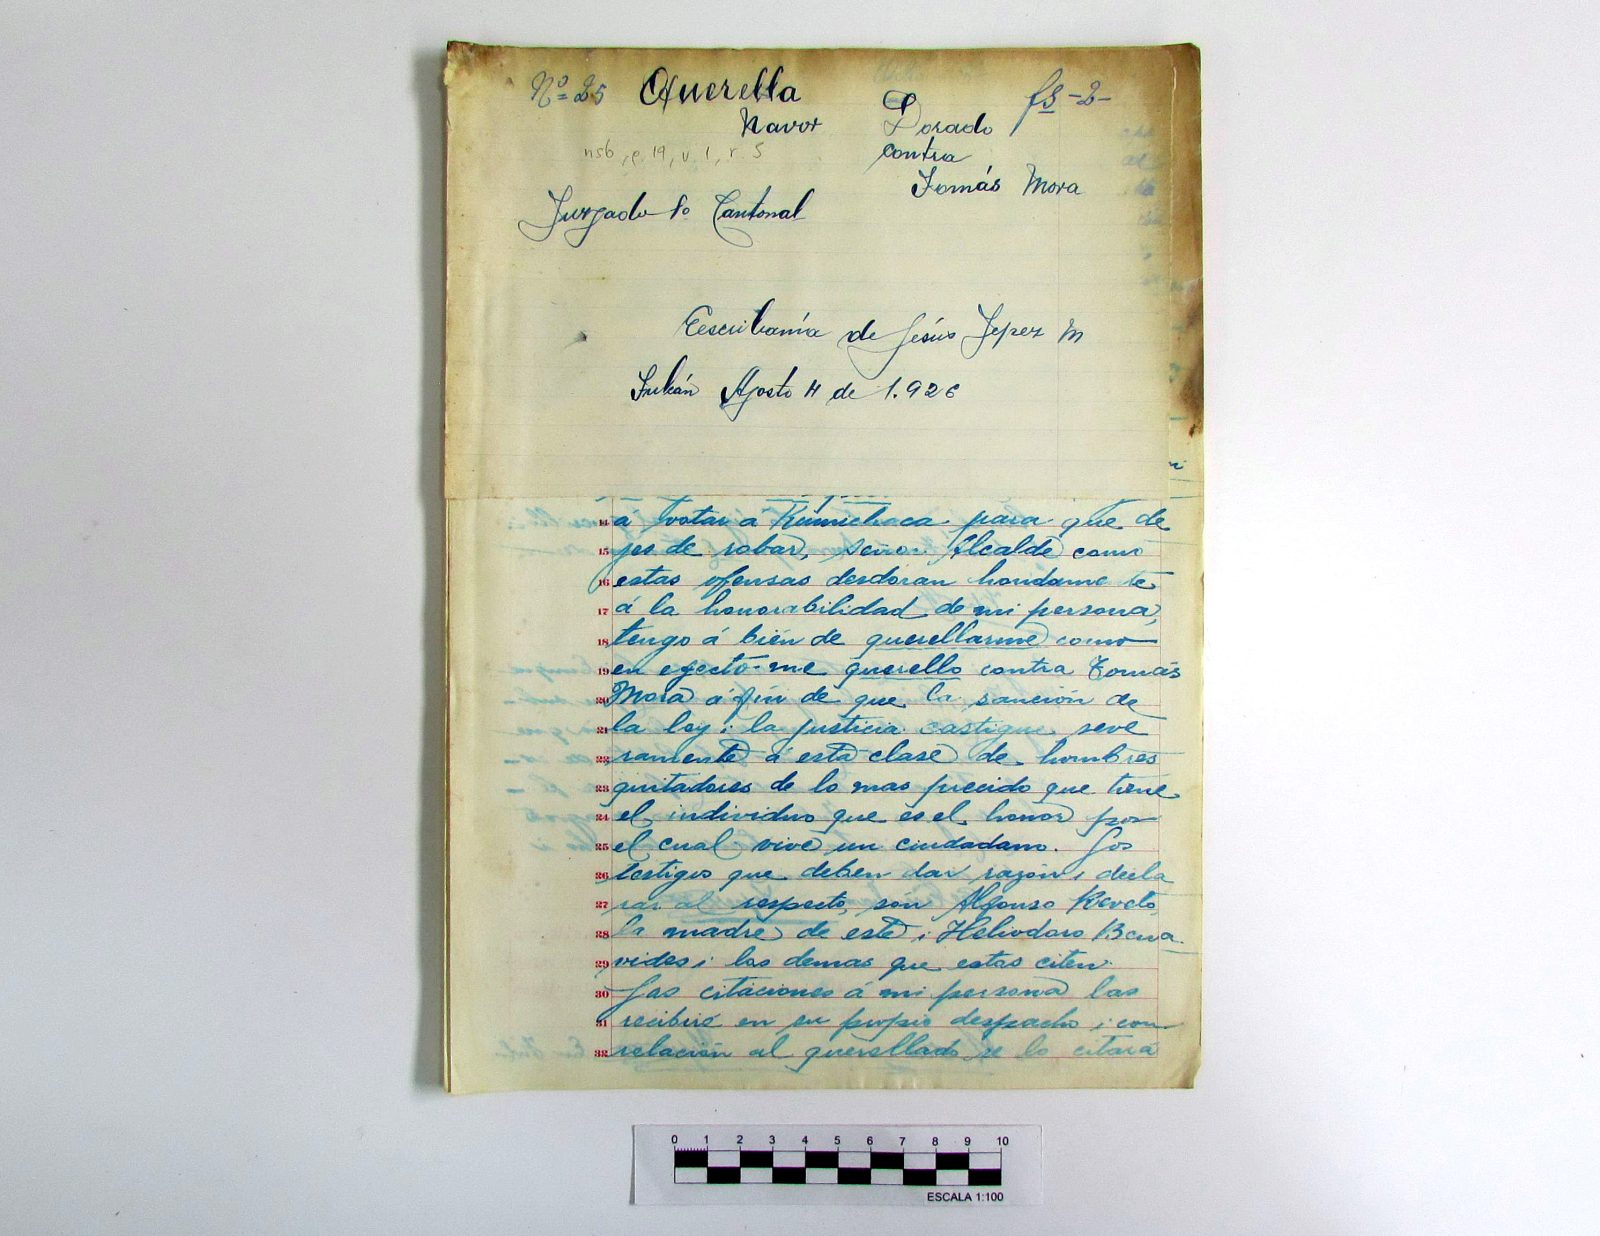 Nº 25 Querella fs -2-
Navor Dorado
contra
nsb, e. 19, v. 1, r. 5
Tomás Mora
Juzgado 1º Cantonal
Escribanía de Jesús Yepez M
Tulcán Agosto 4 de 1.926
14 á votar á Rumichaca para que de
15 jes de robar, señor Alcalde como
16 estas ofensas desdoran hondame te
17 á la honorabilidad de mi persona,
18 tengo á bién de querellarme como
19 en efecto me querello contra Tomás
20 Mora á fin de que la sanción de
21 la ley i la justicia castigue seve
22 ramente á esta clase de hombres
23 quitadores de lo mas precido que tiene
24 el individuo que es el honor por
25 el cual vive un ciudadano. Los
26 testigos que deben dar razón i decla
27 rar al respecto, són Alfonso Revelo,
28 la madre de este i Heliodoro Bena
29 vides i los demas que estos citen.
30 Las citaciones á mi persona las
31 recibiré en su propio despacho i con
32 relación al querellado se lo citará
0 1 2 3 4 5 6 7 8 9 10
ESCALA 1:100